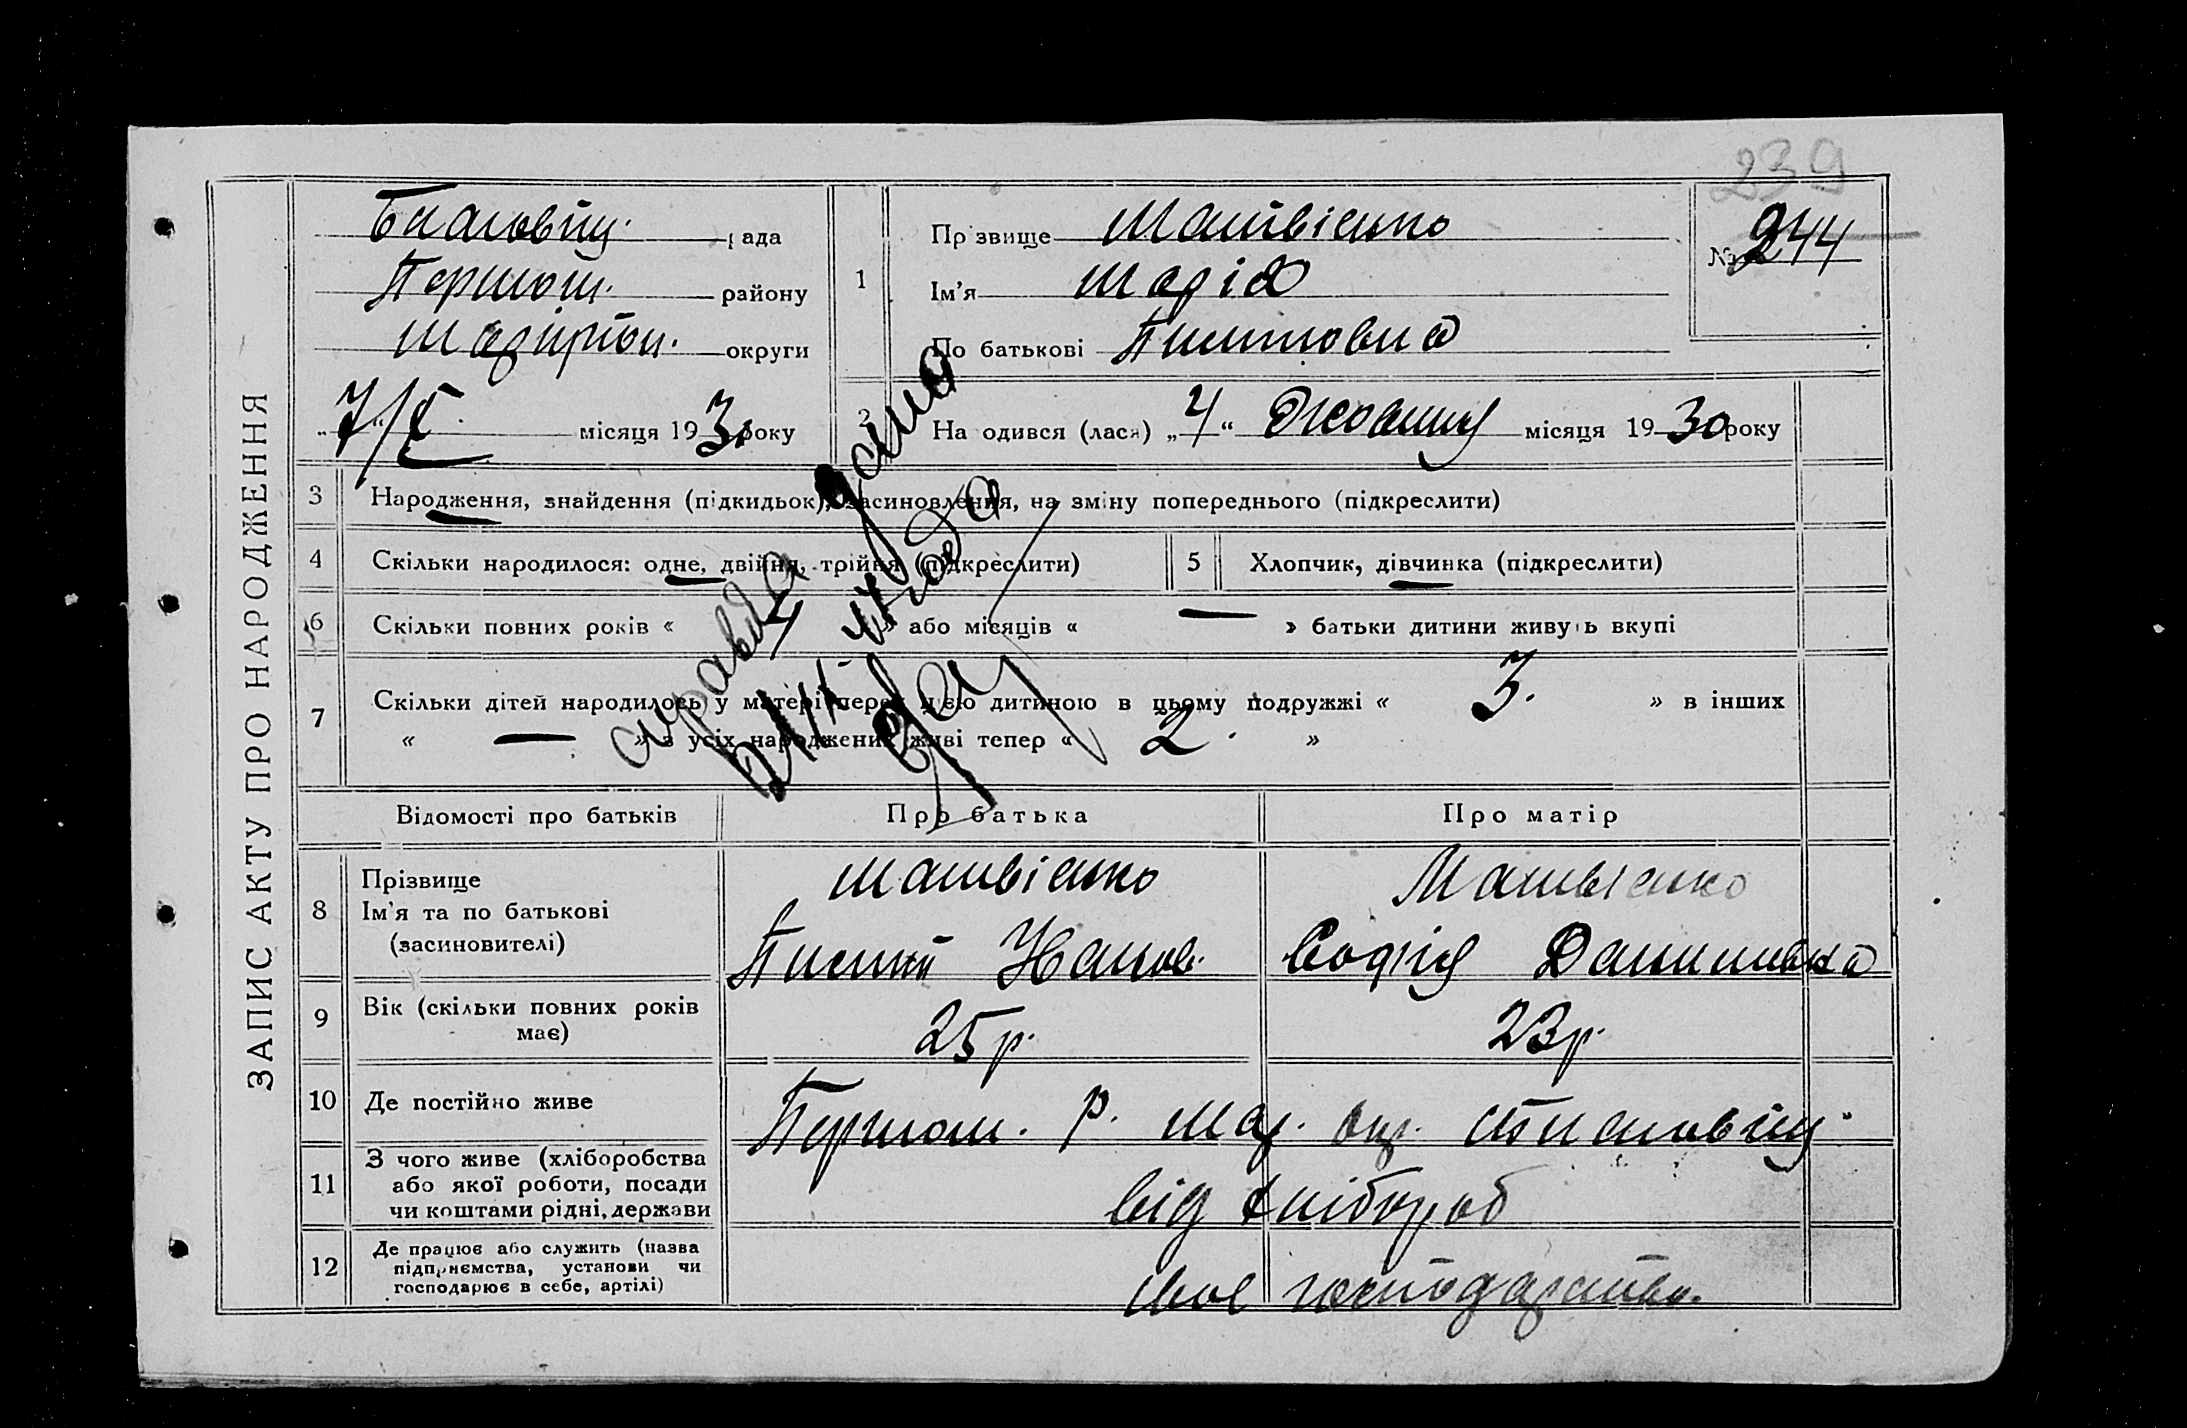 239
ЗАПИС АКТУ ПРО НАРОДЖЕННЯ
рада
Першот. району
округи
„7“/X місяця 1930 року
1
Прізвище Матвієнко
Ім’я Марія
По батькові Пилиповна
№ 244
2 На одився (лася) „4“ Жовтня місяця 1930 року
3 Народження, знайдення (підкидьок), засиновлення, на зміну попереднього (підкреслити)
4 Скільки народилося: одне, двійня, трійня (підкреслити)
5 Хлопчик, дівчинка (підкреслити)
6 Скільки повних років « 4 » або місяців « — » батьки дитини живуть вкупі
7 Скільки дітей народилось у матері перед цією дитиною в цьому подружжі « 3. » в інших
« — » з усіх народжених живі тепер « 2. »
справка дана
Відомості про батьків Про батька Про матір
8 Прізвище
Ім’я та по батькові
(засиновителі)
Матвієнко
Пилип Іванов.
Матвієнко
Софія Данилівна
9 Вік (скільки повних років
має)
25 р. 23 р.
10 Де постійно живе Першот. р. Мар. окр.
11 З чого живе (хліборобства
або якої роботи, посади
чи коштами рідні, держави
від хлібороб
12 Де працює або служить (назва
підприємства, установи чи
господарює в себе, артілі)
своє господарство.